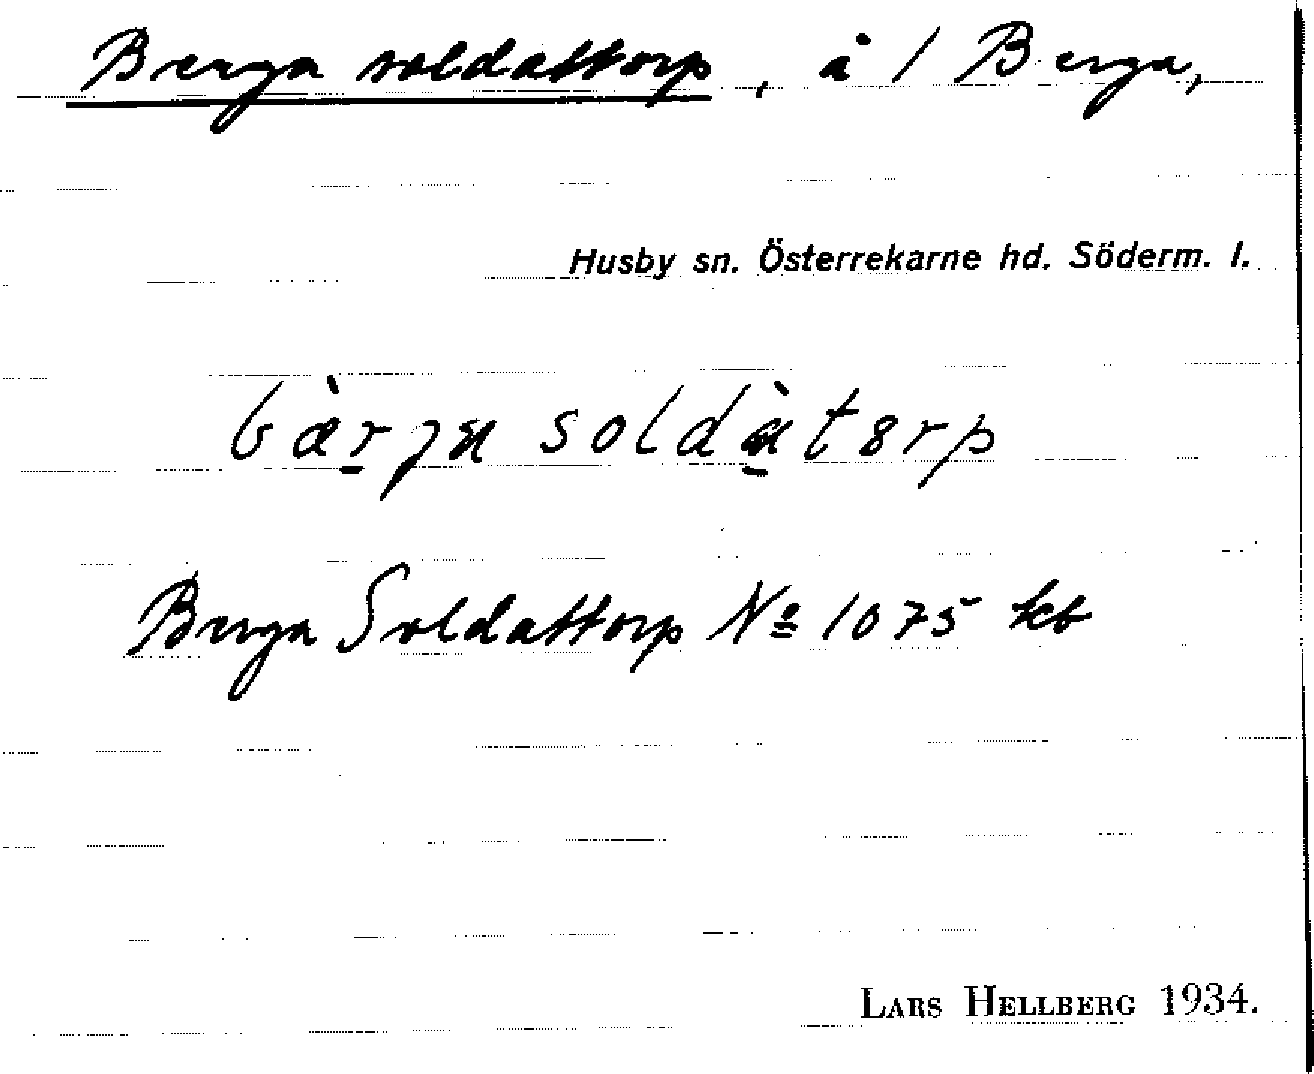 Berga soldattorp, å 1 Berga,
Husby sn. Österrekarne hd. Söderm. l.
bàrja soldàtorp
Berga Soldattorp No 1075 kb
LARS HELLBERG 1934.